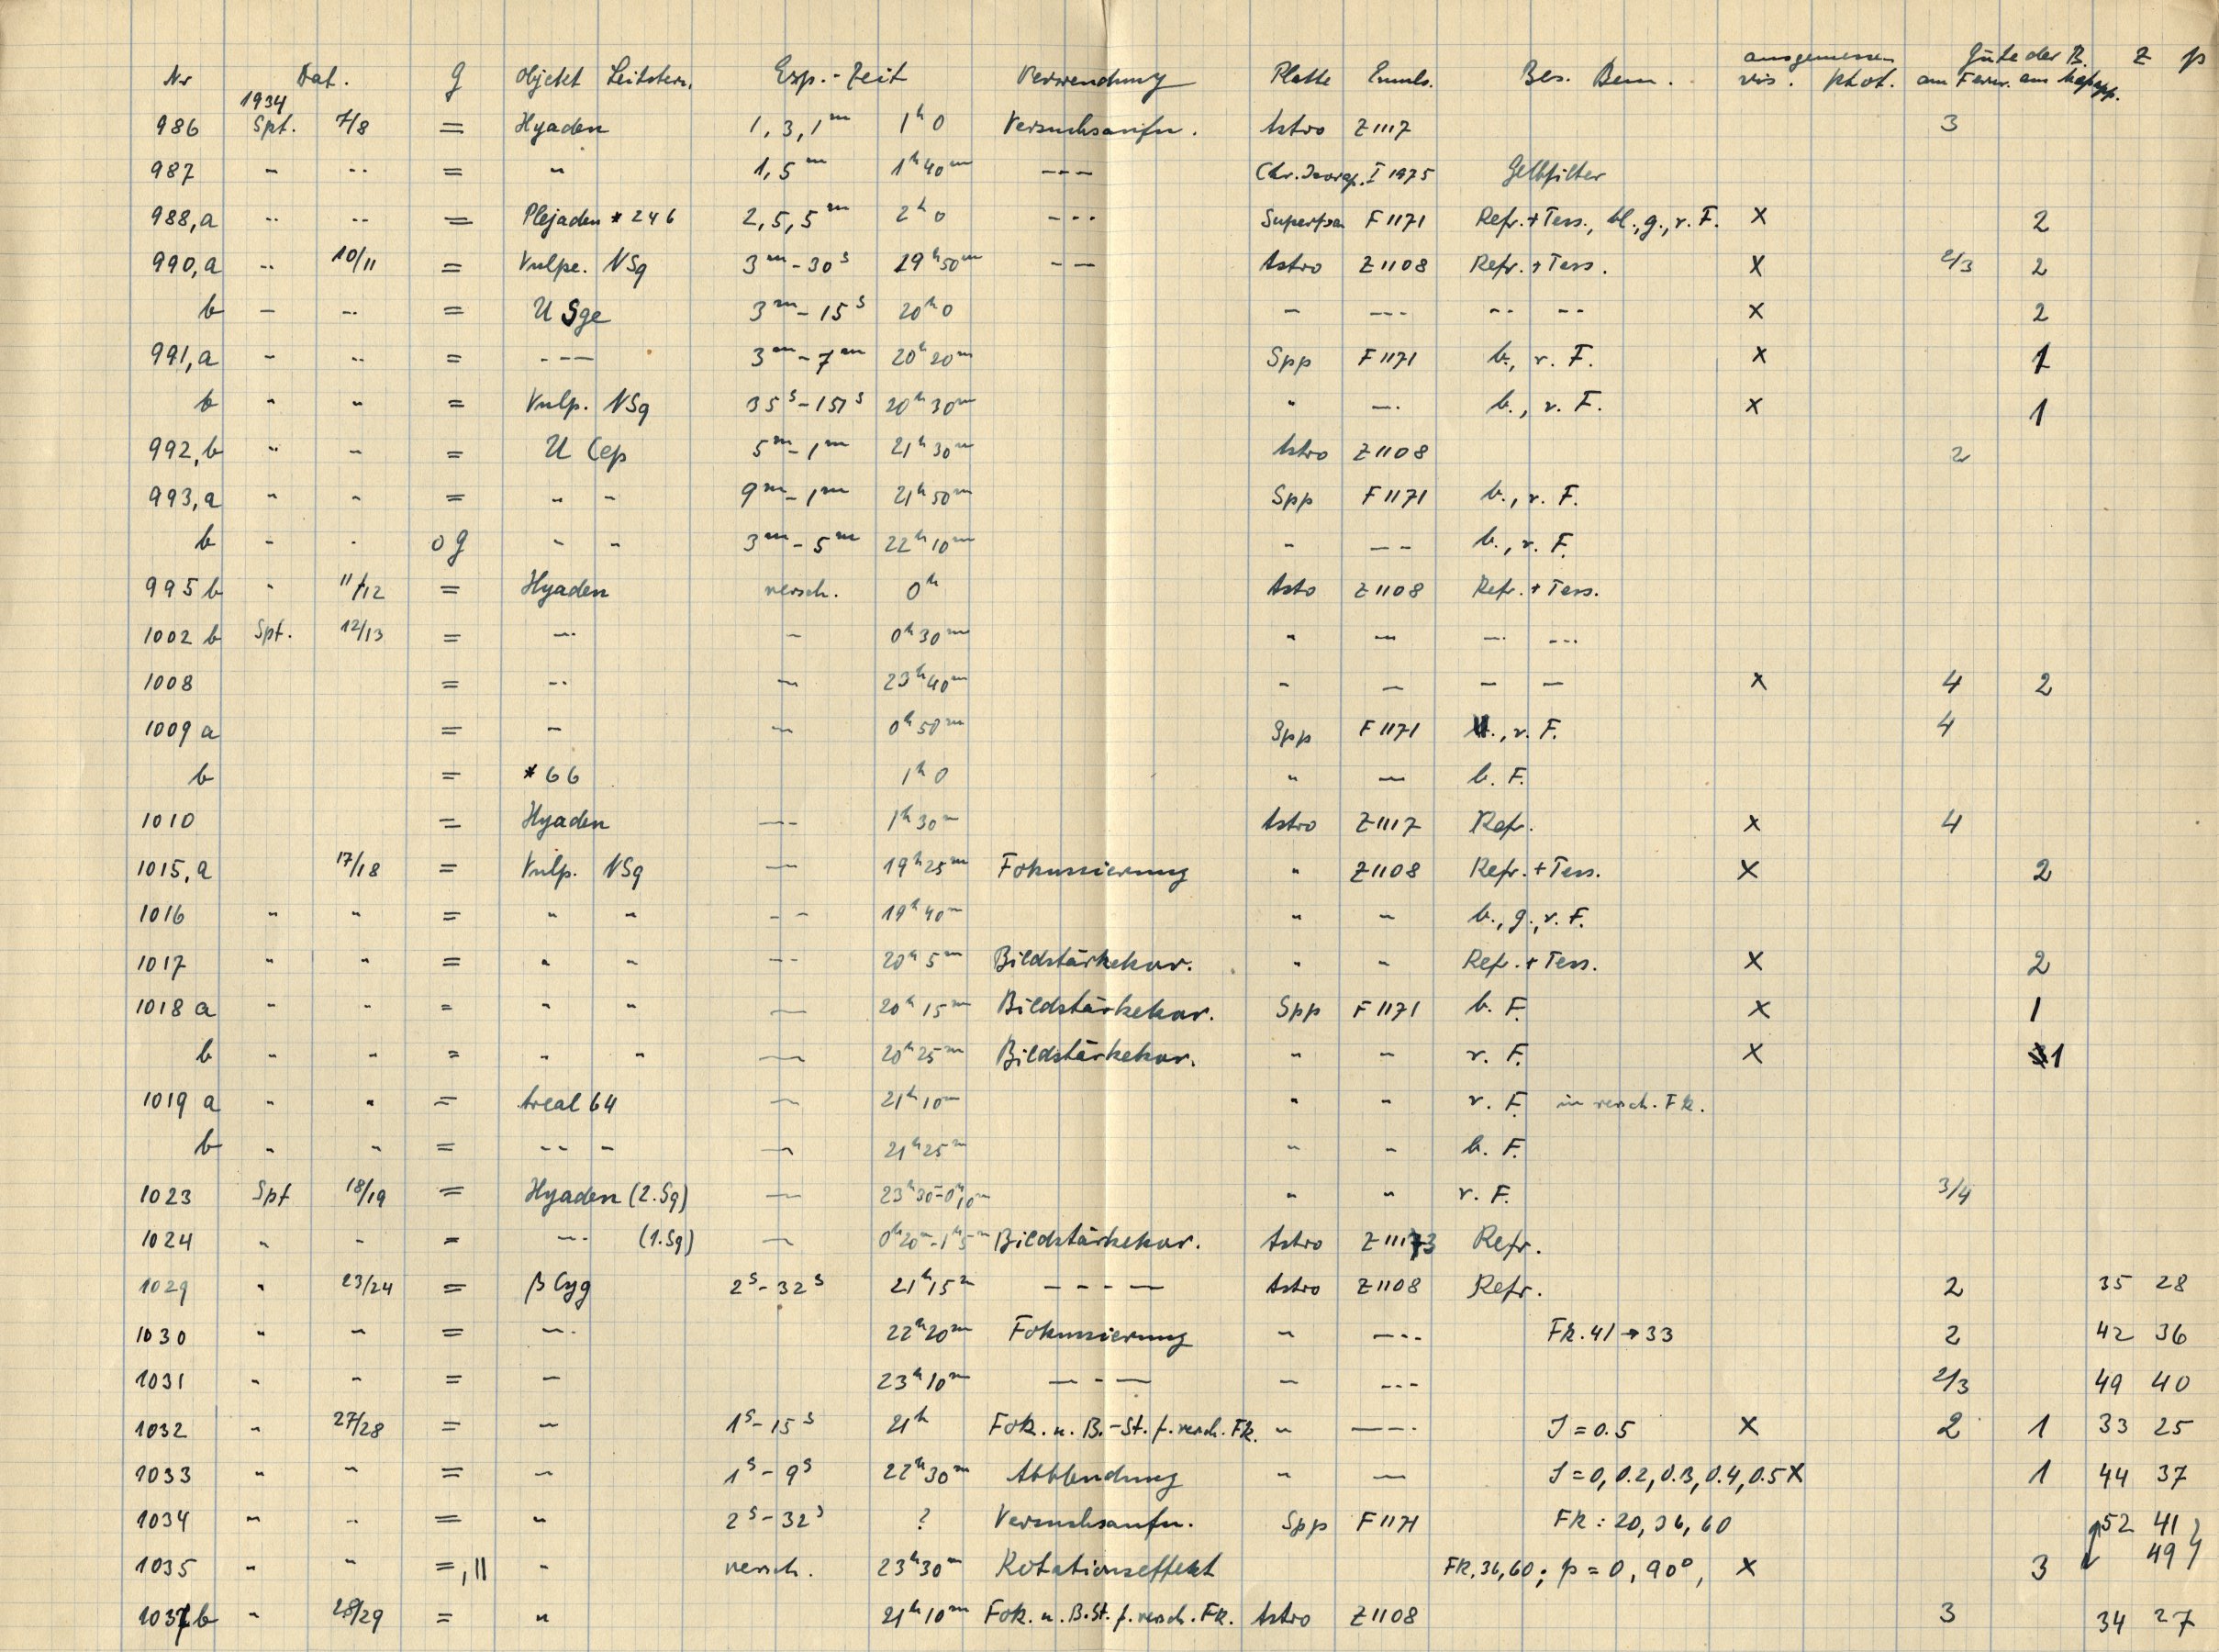 Nr Dat. g Objekt Leitstern. Exp.-Zeit Verwendung Platte Emuls. Bes. Bem. ausgemessen vis. phot. Güte der B. am Fernr. am Meßapp. z p
1934
986 Spt. 7/8 = Hyaden 1, 3, 1 m 1h 0 Versuchsaufn. Astro Z 1117 3
987 " " = " 1, 5 m 1h 40m - - - I 1975 Gelbfilter
988, a " " = Plejaden * 246 2, 5, 5 m 2h 0 - - - Superpan F 1171 Refr. + Tess., bl., g., r. F. x 2
990, a " 10/11 = Vulpe. NSq 3m - 30s 19h 50m - - Astro Z 1108 Refr. + Tess. x 2/3 2
b " " = U Sge 3m - 15s 20h 0 - - - - - - - - x 2
991, a " " = - - - 3m - 7m 20h 20m Spp F 1171 b., r. F. x 1
b " " = Vulp. NSq 35s - 151s 20h 30m " - - b., r. F. x 1
992, b " " = U Cep 5m - 1m 21h 30m Astro Z 1108 2
993, a " " = " " 9m - 1m 21h 50m Spp F 1171 b., r. F.
b " " o g " " 3m - 5m 22h 10m " - - b., r. F.
995 b " 11/12 = Hyaden versch. 0h Asto Z 1108 Refr. + Tess.
1002 b Spt. 12/13 = - - - 0h 30m " - - - - -
1008 = - - - 23h 40m - - - - x 4 2
1009 a = - - 0h 50m Spp F 1171 , r. F. 4
b = * 66 1h 0 " - b. F.
1010 = Hyaden - - - 1h 30m Astro Z 1117 Refr. x 4
1015, a 17/18 = Vulp. NSq - 19h 25m Fokussierung " Z 1108 Refr. + Tess. x 2
1016 " " = " " - - 19h 40m " " b., g., r. F.
1017 " " = " " - - 20h 5m Bildstärkekor. " " Refr. + Tess. x 2
1018 a " " = " " - 20h 15m Bildstärkekor. Spp F 1171 b. F. x 1
b " " = " " - 20h 25m Bildstärkekor. " " r. F. x 1
1019 a " " = Areal 64 - 21h 10m " " r. F. in versch. Fk.
b " " = - - - - 21h 25m " " b. F.
1023 Spt 18/19 = Hyaden (2. Sq) - 23h 30 - 0h 10m " " r. F. 3/4
1024 " " = - - (1. Sq) - 0h 20m - 1h 5m Bildstärkekor. Astro Refr.
1029 " 23/24 = β Cyg 2s - 32s 21h 15m - - - - Astro Z 1108 Refr. 2 35 28
1030 " " = - - 22h 20m Fokussierung " - - - Fk. 41 → 33 2 42 36
1031 " " = - 23h 10m - - - " - - - 2/3 49 40
1032 " 27/28 = " 1s - 15s 21h Fok. u. B.-St. f. versch. Fk. " - - - J = 0.5 x 2 1 33 25
1033 " " = " 1s - 9s 22h 30m Abblendung " - J = 0, 0.2, 0.3, 0.4, 0.5 x 1 44 37
1034 " " = " 2s - 32s ? Versuchsaufn. Spp F 1171 Fk : 20, 36, 60 52 41
1035 " " =, || " versch. 23h 30m Rotationseffekt Fk. 36, 60; p = 0, 90°, x 3 49
1037 b " 28/29 = " 21h 10m Fok. u. B.St. f. versch. Fk. Astro Z 1108 3 34 27